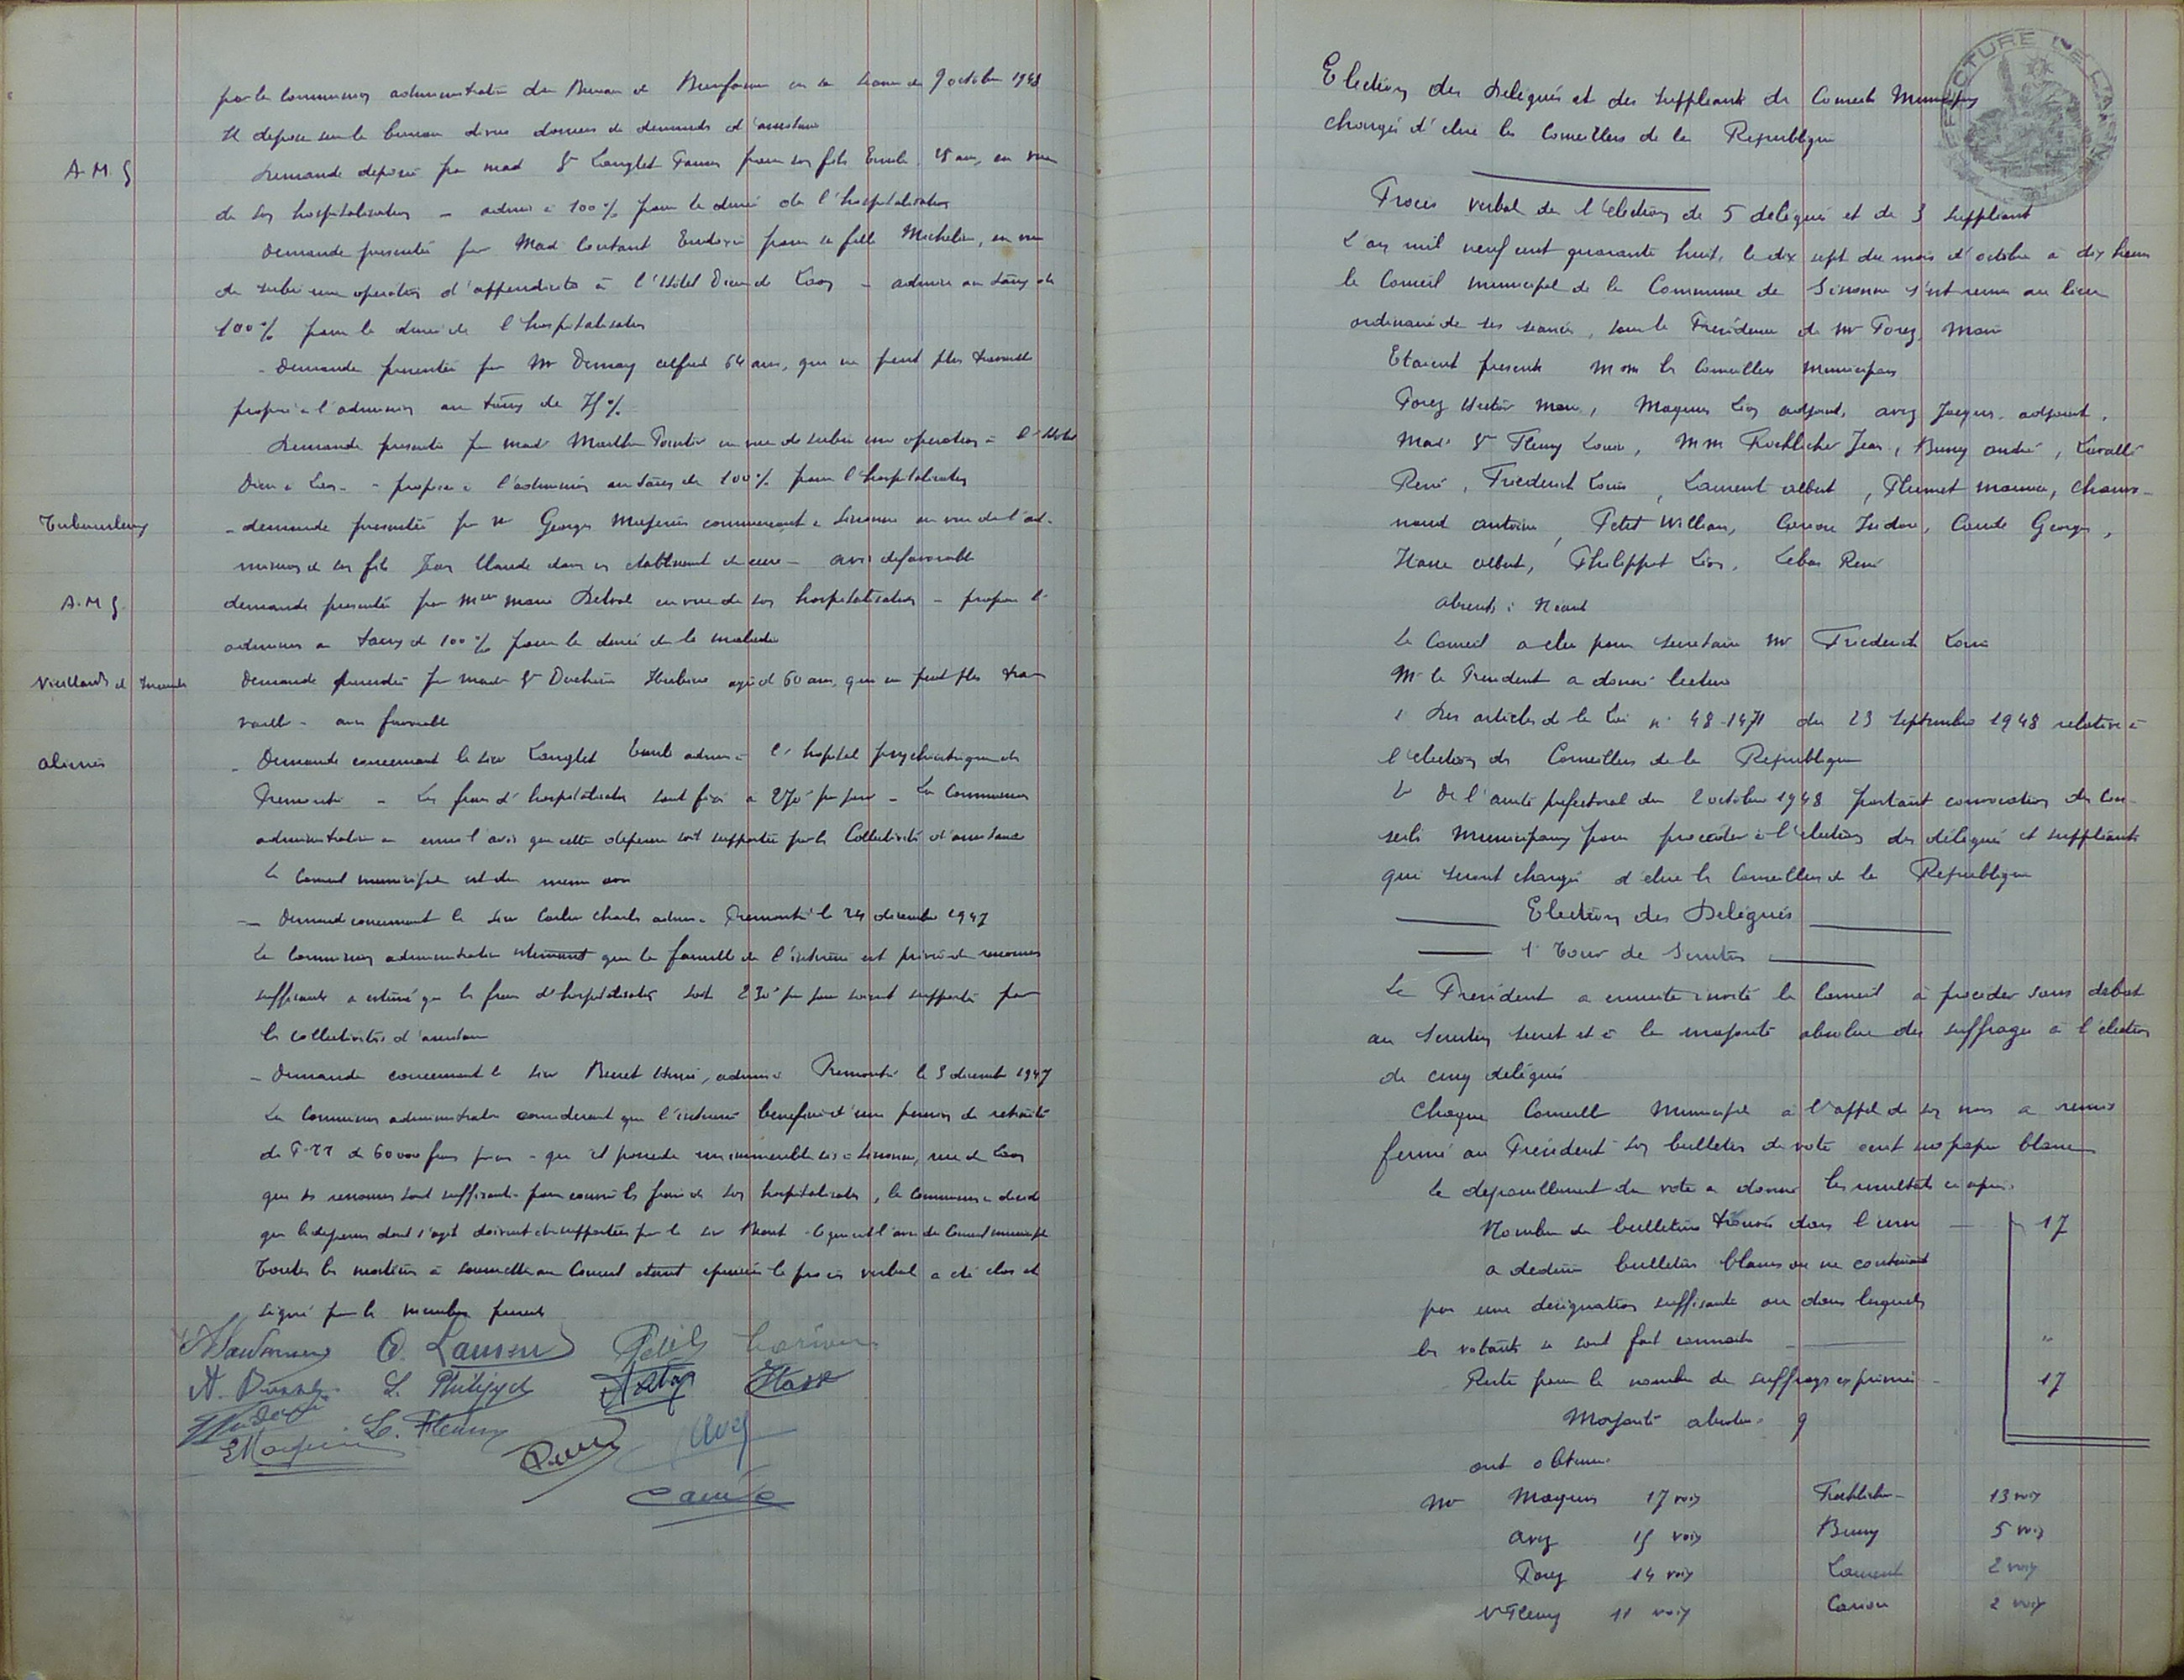 par la commission administrative du Bureau de Bienfaisance en sa séance du 9 octobre 1948
Il dépose sur le bureau divers dossiers de demandes d'assistance
A.M.G
Demande déposée par Mad Vve Langlet pour son fils Emile, ans, en vue
de son hospitalisation - admis à 100% pour la durée de l'hospitalisation
Demande présentée par Mad Coutant pour sa fille Micheline, en vue
de subir une opération d'appendicite à l'Hôtel Dieu de Laon - admise au taux de
100% pour la durée de l'hospitalisation
- Demande présentée par Mr Demay Alfred 64 ans, qui ne peut plus travailler
propose l'admission au taux de 75%
Demande présentée par Mad Marthe en vue de subir une opération à l'Hôtel
Dieu à Laon - propose l'admission au taux de 100% pour l'hospitalisation
Tuberculeux
- demande présentée par Mr Georges commerçant à Sissonne en vue de l'ad-
mission de son fils Jean Claude dans un établissement de cure - avis défavorable
A.M.G.
demande présentée par Melle Marie Delval en vue de son hospitalisation - propose l'
admission au taux de 100% pour la durée de la maladie
Vieillards et Incurables
Demande présentée par Mad Vve âgée de 60 ans, qui ne peut plus tra-
vailler - avis favorable
Aliénés
- Demande concernant le sieur Langlet Emile admis à l'hôpital psychiatrique de
Prémontré - Les frais d'hospitalisation sont fixés à par jour - La Commission
administrative a émis l'avis que cette dépense soit supportée par la Collectivité d'assistance
Le Conseil municipal est du même avis
- Demande concernant le sieur Charles admis à Prémontré le 24 décembre 1947
La Commission administrative estimant que la famille de l'interné est privée de ressources
suffisantes a estimé que les frais d'hospitalisation soit 230f par jour soient supportés par
les collectivités d'assistance
- Demande concernant le sieur Henri, admis à Prémontré le 3 décembre 1947
La Commission administrative considérant que l'interné bénéficie d'une pension de retraite
de P.T.T de 60000 francs par an - qu'il possède un immeuble sis à Sissonne, rue de Laon
que ses ressources sont suffisantes pour couvrir les frais de son hospitalisation, la commission décide
que les dépenses dont s'agit doivent être supportées par le sieur - tel que est l'avis du Conseil municipal
Toutes les matières à soumettre au Conseil étant épuisées le procès verbal a été clos et
signé par les membres présents
A. Laurent Petit Carion
L. Philippot Haxe
L. Fleury
E Magnier Avez
Caude
Election des Délégués et des Suppléants du Conseil Municipal
chargés d'élire les Conseillers de la République
Procès verbal de l'élection de 5 délégués et de 3 suppléants
L'an mil neuf cent quarante huit, le dix sept du mois d'octobre à dix heures
le Conseil Municipal de la Commune de Sissonne s'est réuni au lieu
ordinaire de ses séances, sous la Présidence de Mr Forez, Maire
Etaient présents MMrs les Conseillers Municipaux
Forez Hector Maire, Magnier Léon adjoint, Avez Jacques adjoint,
Made Vve Fleury Louise, MM Froehlicher Jean, Buny André, Lavallé
René, Friederich Louis, Laurent Albert, Plumet Maurice, Chauvo-
naud Antoine, Petit William, Carion Isidore, Caude Georges,
Haxe Albert, Philippot Léon, Lebas René
Absents : Néant
Le Conseil a élu pour secrétaire Mr Friederich Louis
Mr le Président a donné lecture
1° Des articles de la Loi n° 48-1471 du 23 septembre 1948 relative à
l'élection des Conseillers de la République
2° De l'arrêté préfectoral du 2 octobre 1948 portant convocation des Con-
seils Municipaux pour procéder à l'élection des délégués et suppléants
qui seront chargés d'élire les Conseillers de la République
Election des Délégués
1° Tour de Scrutin
Le Président a ensuite invité le Conseil à procéder sans débat
au scrutin secret et à la majorité absolue des suffrages à l'élection
de cinq délégués
Chaque Conseiller Municipal à l'appel de son nom a remis
fermé au Président son bulletin de vote écrit sur papier blanc
Le dépouillement du vote a donné les résultats ci après.
Nombre de bulletins trouvés dans l'urne 17
à déduire bulletins blancs ou ne contenant
pas une désignation suffisante ou dans lesquels
les votants se sont fait connaître "
Reste pour le nombre de suffrages exprimés 17
Majorité absolue 9
ont obtenu
Mr Magnier 17 voix Froehlicher 13 voix
Avez 15 voix Buny 5 voix
Forez 14 voix Laurent 2 voix
Vve Fleury 11 voix Carion 2 voix